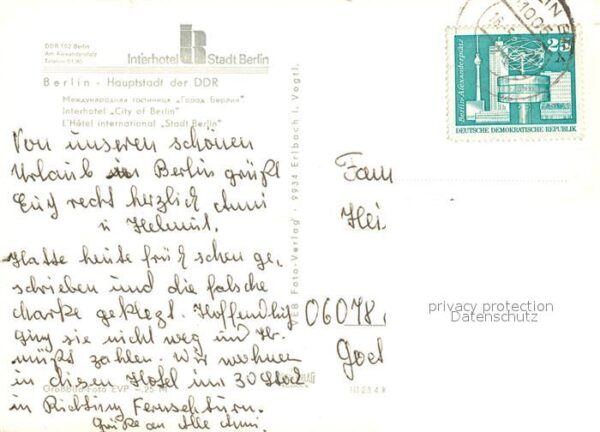 DDR 102 Berlin
Am Alexanderplatz
Interhotel Stadt Berlin
Berlin - Hauptstadt der DDR
Международная гостиница „Город Берлин"
Interhotel „City of Berlin"
L'Hôtel international „Stadt Berlin"
Von unseren schönen
Urlaub in Berlin grüßt
Euch recht herzlich Anni
u Helmut.
Hatte heute früh schon ge-
schrieben und die falsche
Marke geklebt. Hoffentlich
ging sie nicht weg und Ihr
müßt zahlen. Wir wohnen
in diesen Hotel im 30 Stock
in Richtung Fernsehturm.
Grüße an Alle Anni.
Großbild-Foto EVP -,25 M
VEB Foto-Verlag · 9934 Erlbach i. Vogtl.
25
Berlin, Alexanderplatz
DEUTSCHE DEMOKRATISCHE REPUBLIK
Fam
Hei
06078
Goet
privacy protection
Datenschutz